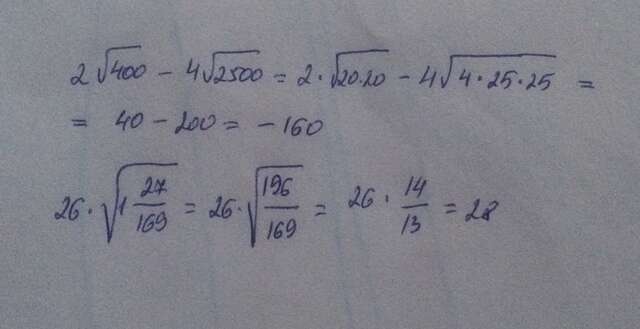 2√400 − 4√2500 = 2·√20·20 − 4√4·25·25 =
= 40 − 200 = −160
26·√1 27/169 = 26·√196/169 = 26 · 14/13 = 28